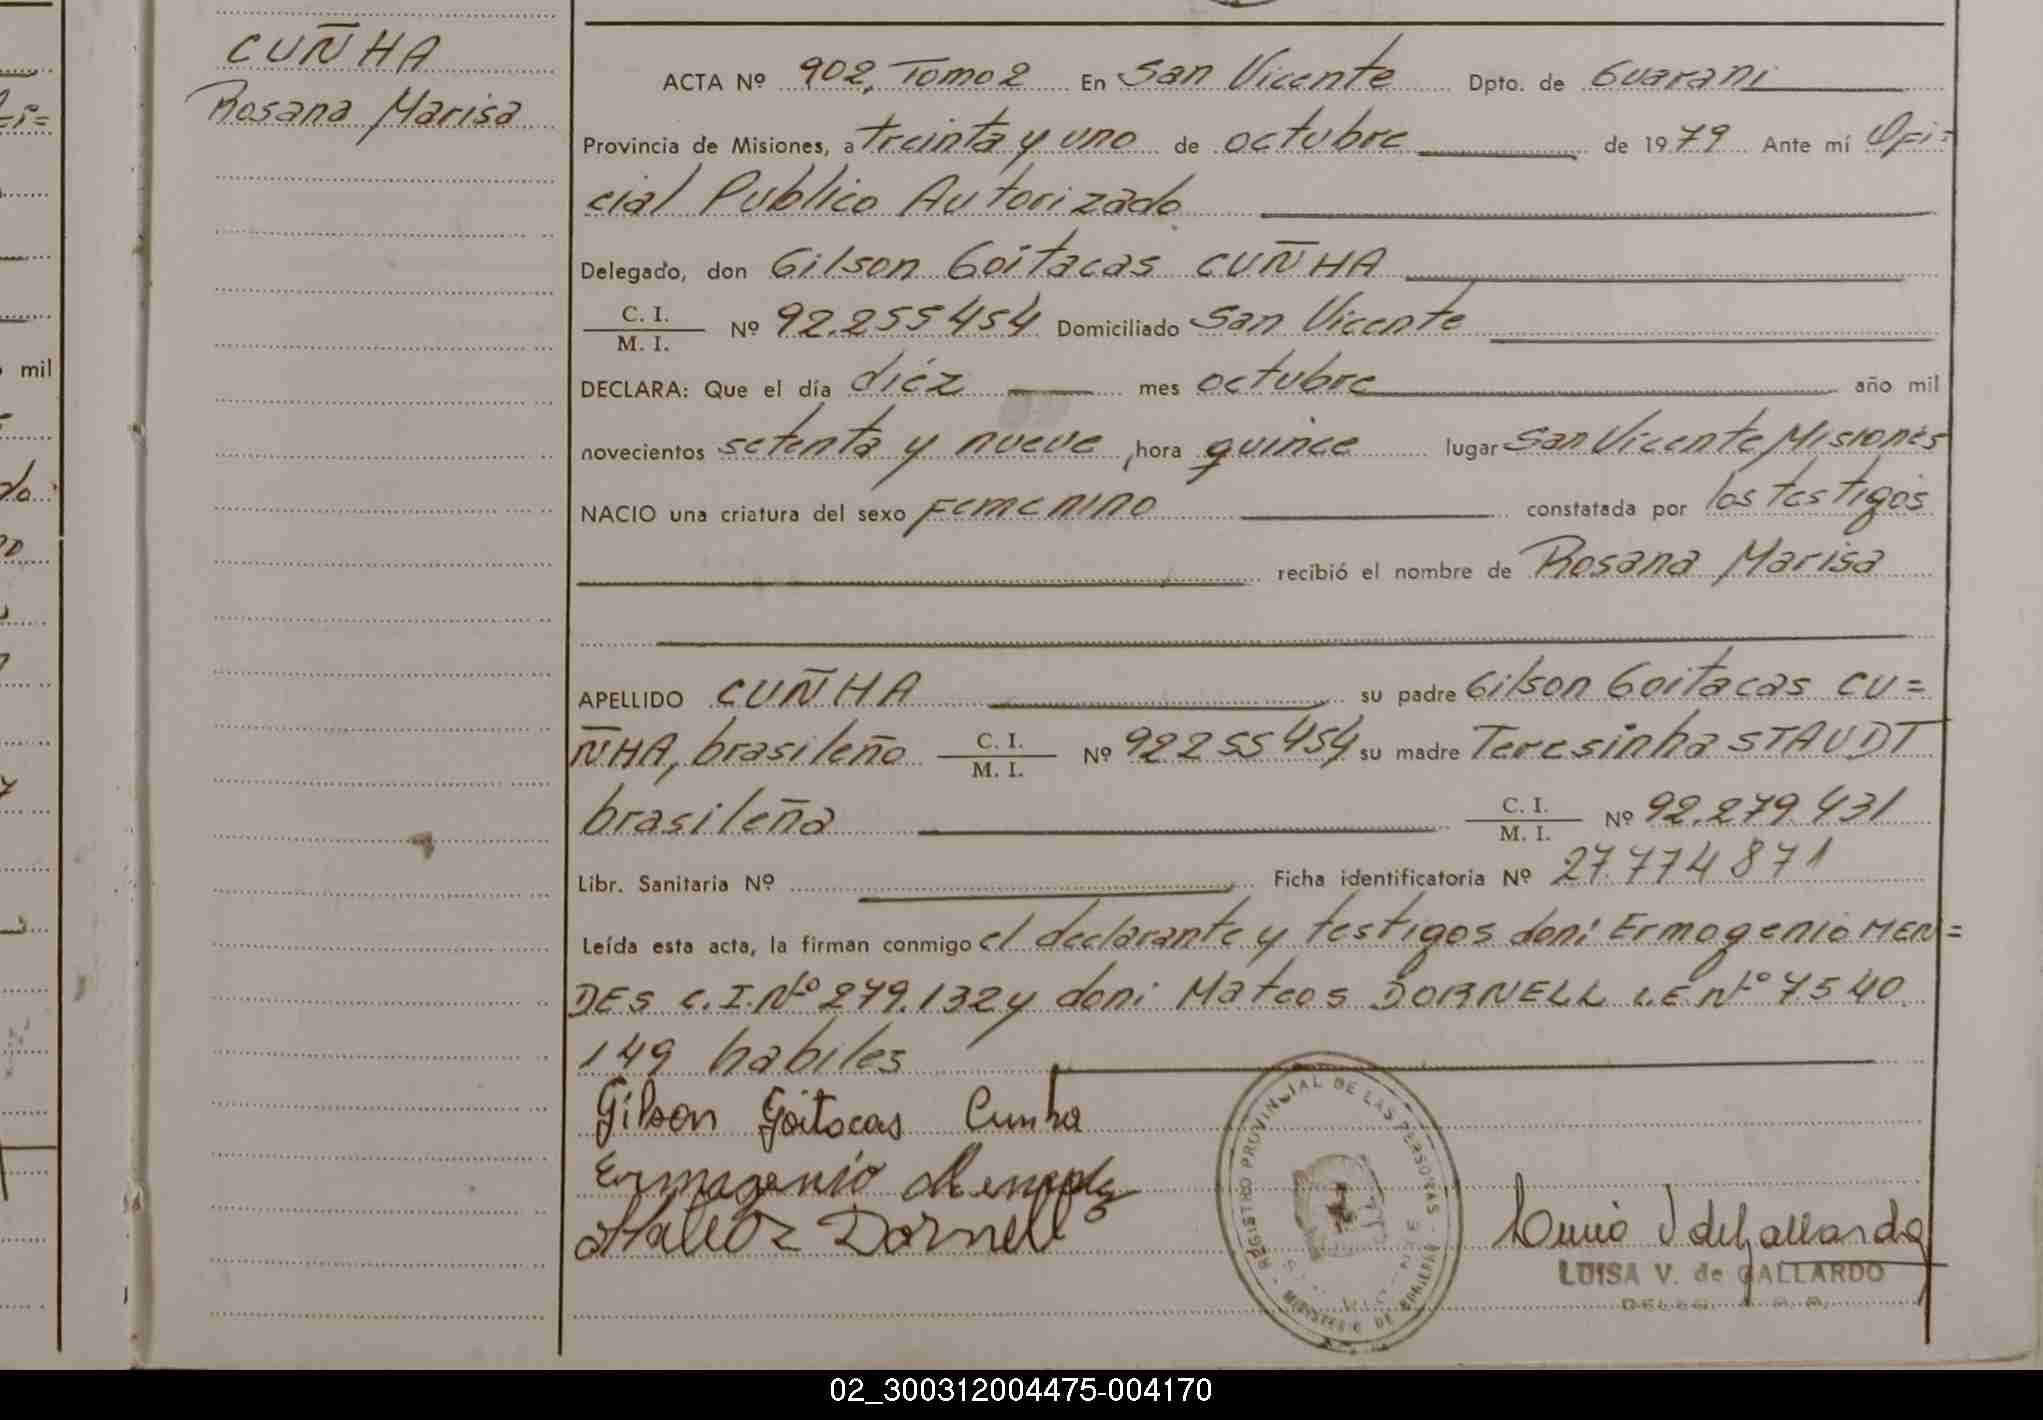 CUÑHA
Rosana Marisa
ACTA Nº 902, Tomo 2 En San Vicente Dpto. de Guarani
Provincia de Misiones, a treinta y uno de octubre de 1979 Ante mí Ofi=
cial Publico Autorizado
Delegado, don Gilson Goitacas CUÑHA
C. I.
M. I. Nº 92.255454 Domiciliado San Vicente
DECLARA: Que el día diéz mes octubre año mil
novecientos setenta y nueve, hora quince lugar San Vicente Misiones
NACIO una criatura del sexo Femenino constatada por los testigos
recibió el nombre de Rosana Marisa
APELLIDO CUÑHA su padre Gilson Goitacas CU=
ÑHA, brasileño C. I.
M. I. Nº 92255454 su madre Teresinha STAUDT
brasileña C. I.
M. I. Nº 92.279.431
Libr. Sanitaria Nº Ficha identificatoria Nº 27.774871
Leída esta acta, la firman conmigo el declarante y testigos doni Ermogenio MEN=
DES C.I.Nº 279.132 y doni Mateos DORNELL L.E Nº 7540
149 habiles
Gilson Goitacas Cunha
Ermogenio Mendes
Mateos Dornell
REGISTRO PROVINCIAL DE LAS PERSONAS
MINISTERIO DE GOBIERNO
LUISA V. de GALLARDO
mil
02_300312004475-004170